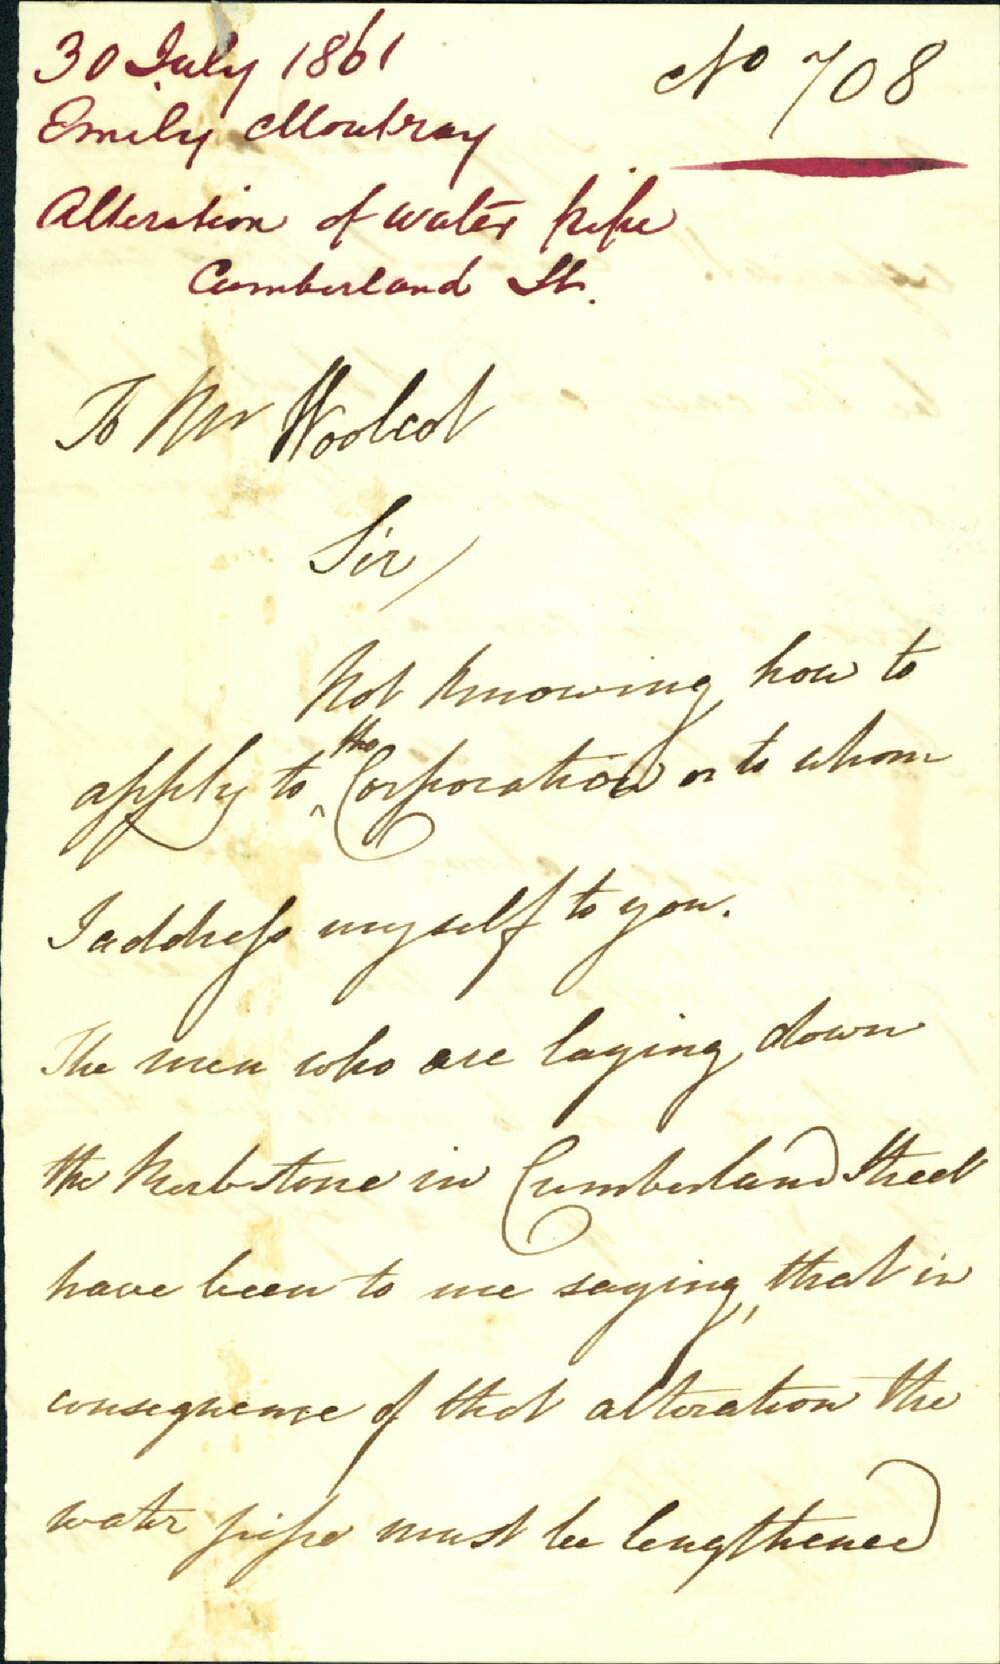 30 July 1861
No 708
Emily Moutray
Alteration of water pipe
Cumberland St.
To Mr Woolcot
Sir/
Not knowing how to
apply to the Corporation or to whom
I address myself to you.
The men who are laying down
the Kerb-stone in Cumberland Street
have been to me saying, that in
consequence of that alteration the
water pipe must be lengthened